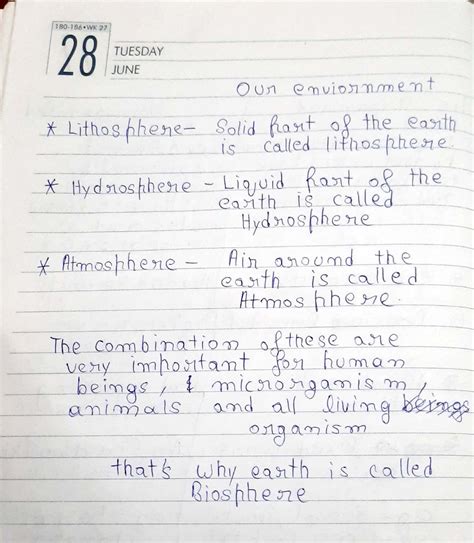 180-186•WK 27
28
TUESDAY
JUNE
Our enviornment
* Lithosphere - Solid part of the earth
is called lithosphere.
* Hydrosphere - Liquid part of the
earth is called
Hydrosphere
* Atmosphere - Air around the
earth is called
Atmosphere.
The combination of these are
very important for human
beings, & microrganism,
animals and all living beings
organism
that's why earth is called
Biosphere